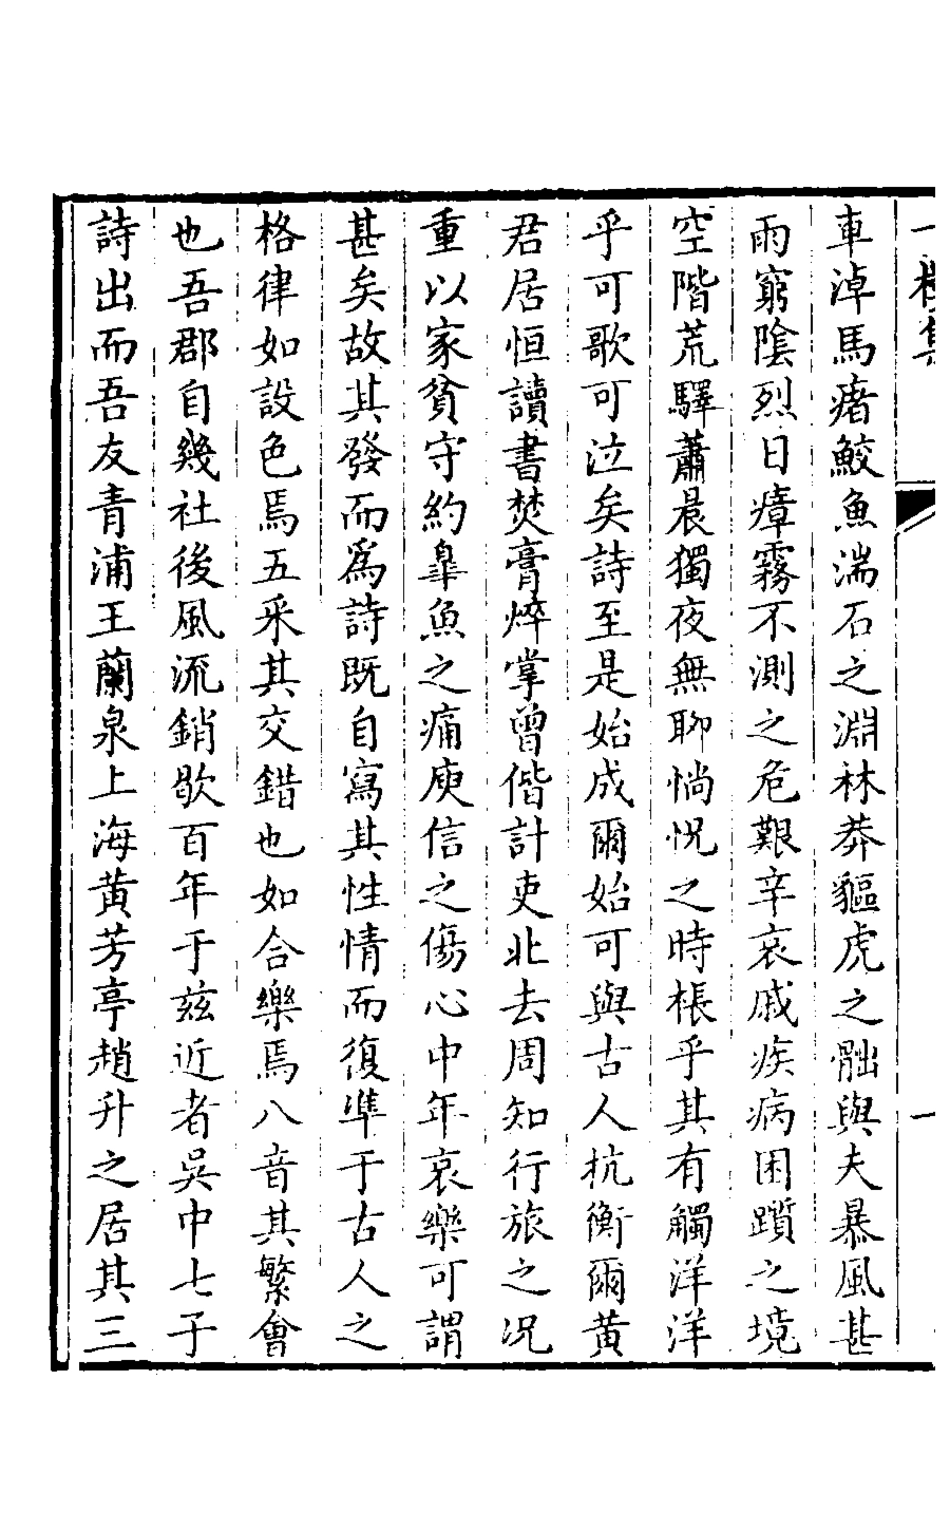 車淖馬瘏鮫魚湍石之淵林莽貙虎之䏣與夫暴風甚
雨窮陰烈日瘴霧不測之危艱辛哀戚疾病困躓之境
空階荒驛蕭晨獨夜無聊惝怳之時棖乎其有觸洋洋
乎可歌可泣矣詩至是始成爾始可與古人抗衡爾黃
君居恒讀書焚膏焠掌曾偕計吏北去周知行旅之况
重以家貧守約臯魚之痛庾信之傷心中年哀樂可謂
甚矣故其發而爲詩既自寫其性情而復準于古人之
格律如設色焉五采其交錯也如合樂焉八音其繁會
也吾郡自幾社後風流銷歇百年于兹近者吳中七子
詩出而吾友青浦王蘭泉上海黄芳亭趙升之居其三